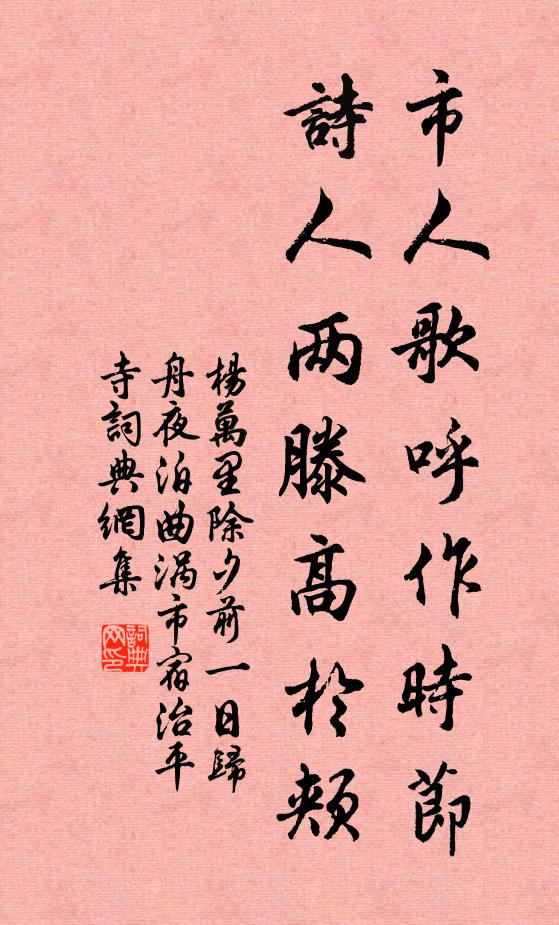 市人歌呼作時節
詩人两滕高於頰
楊萬里除夕前一日歸
舟夜泊曲涡市宿治平
寺詞典網集
詞典网印